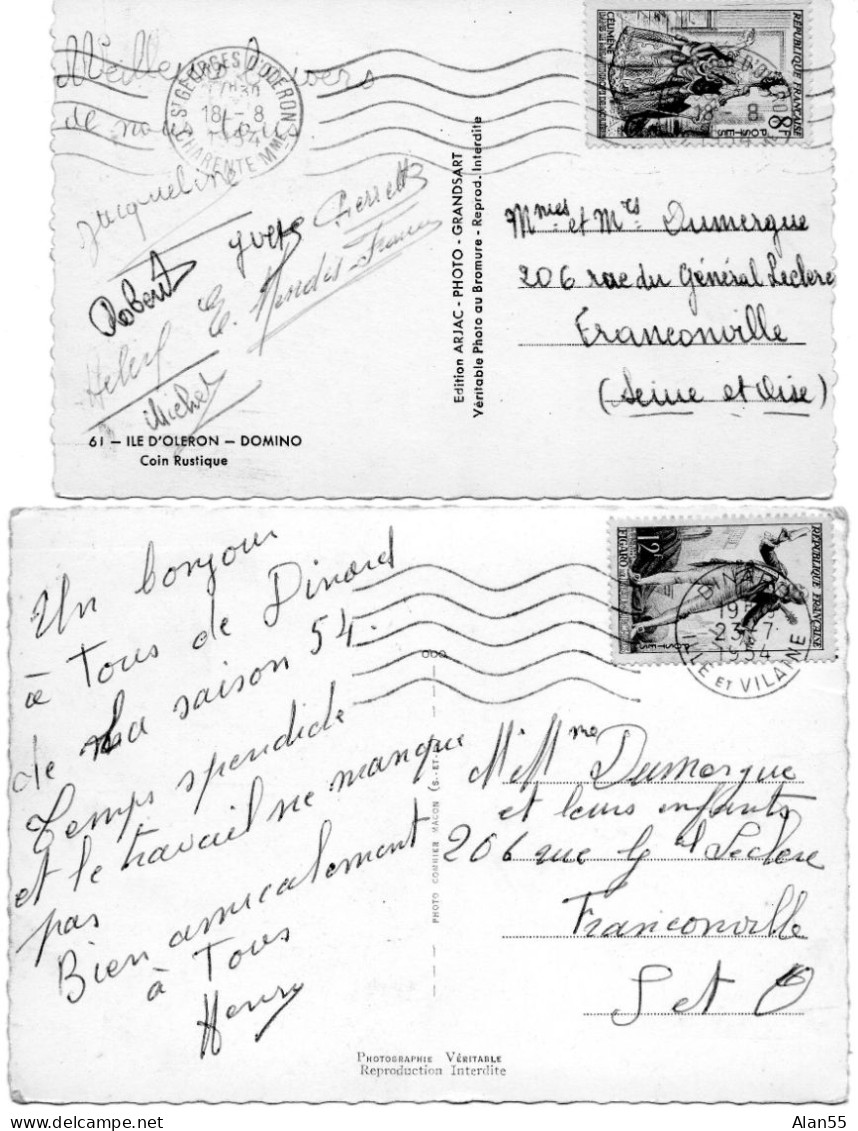 Meilleurs baisers
de nous tous
Jacqueline
Robert Yves Pierrette
E. Mendès-France
Michel
61 — ILE D'OLERON — DOMINO
Coin Rustique
ST GEORGES D'OLERON
18 - 8
1954
CHARENTE MME
Edition ARJAC - PHOTO - GRANDSART
Véritable Photo au Bromure - Reprod. Interdite
REPUBLIQUE FRANÇAISE
CELIMENE
8F
POSTES
Mmes et Mrs Dumergue
206 rue du Général Leclerc
Franconville
(Seine et Oise)
Un bonjour
à Tous de Dinard
de la saison 54.
Temps spendide
et le travail ne manque
pas
Bien amicalement
à Tous
Henry
PHOTO COMBIER MACON (S.-ET-L.)
REPUBLIQUE FRANÇAISE
FIGARO
12F
POSTES
DINARD
23 - 7
1954
ILLE ET VILAINE
M. Mme Dumergue
et leurs enfants
206 rue Gal Leclerc
Franconville
S et O
PHOTOGRAPHIE VÉRITABLE
Reproduction Interdite
Alan55